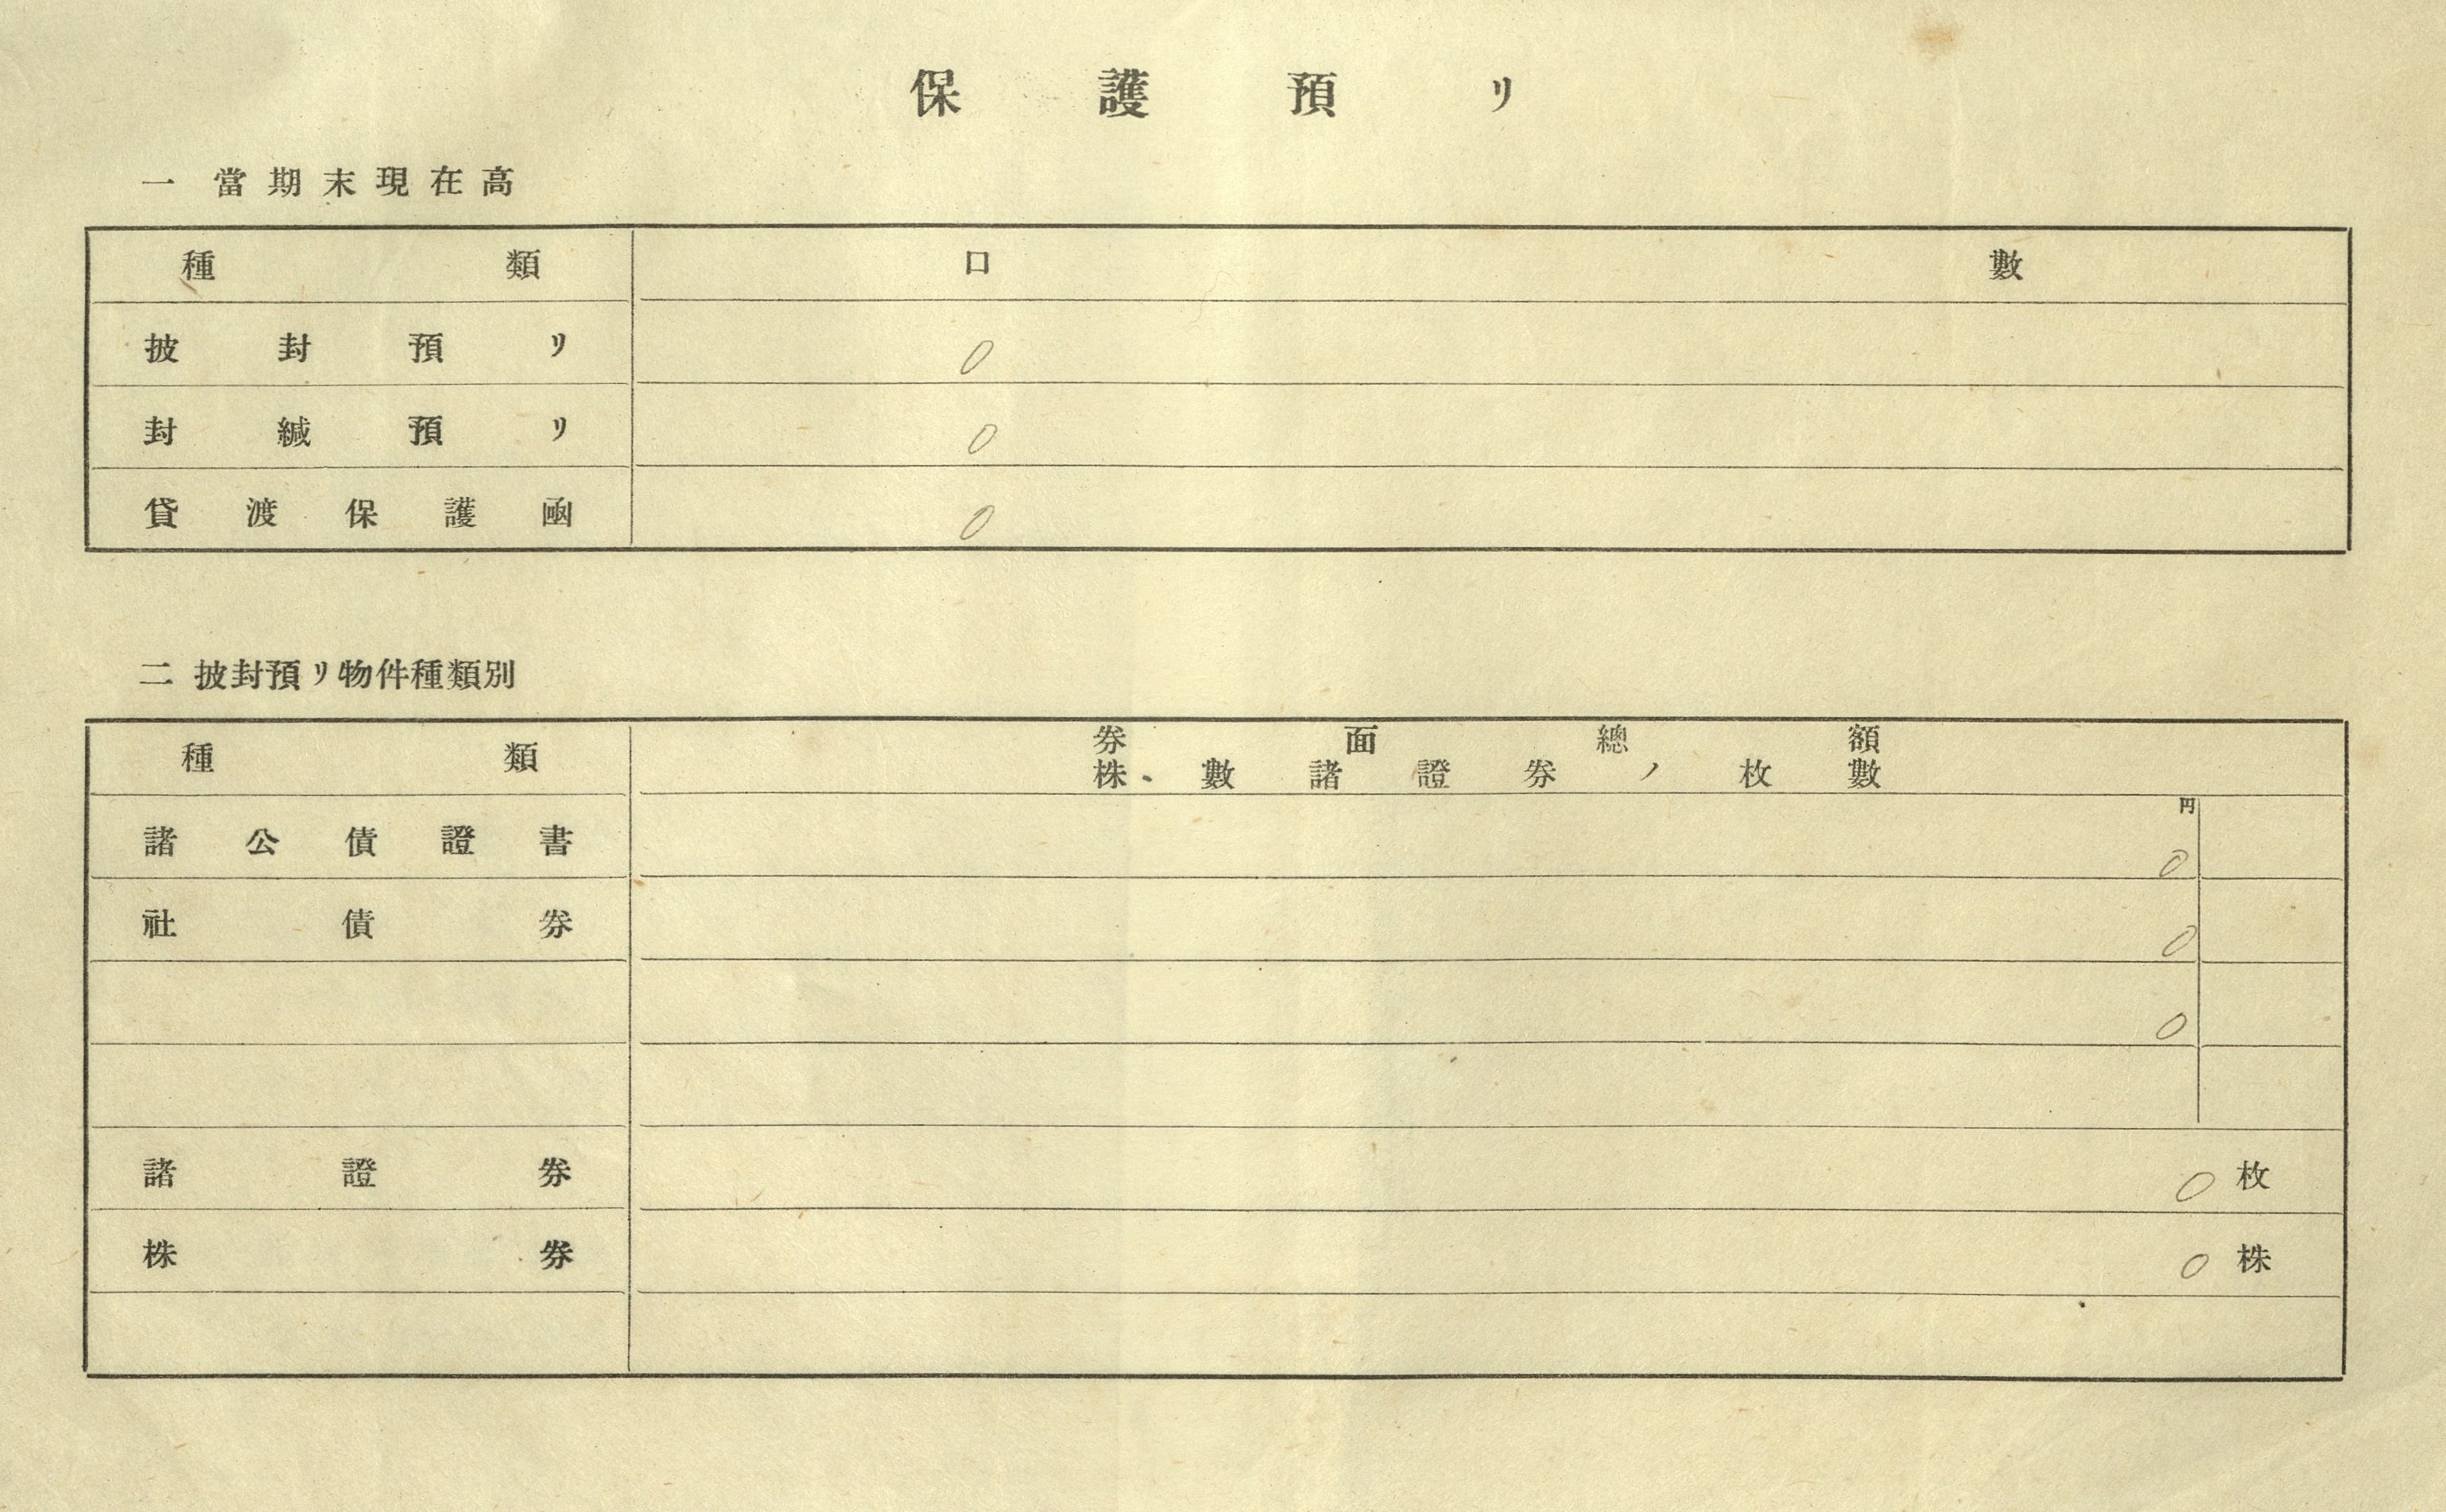 保護預リ
一 當期末現在高
種類 口數
披封預リ 0
封緘預リ 0
貸渡保護凾 0
二 披封預リ物件種類別
種類 券面總額
株、數諸證券ノ枚數
円
諸公債證書 0
社債券 0
0
諸證券 0 枚
株券 0 株